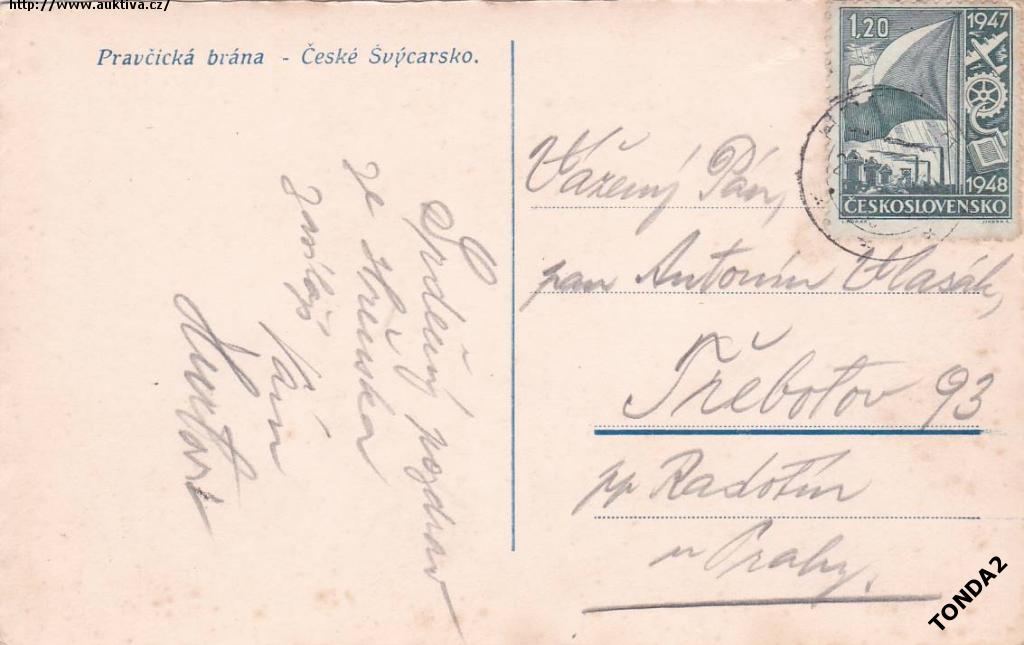 http://www.auktiva.cz/
Pravčická brána - České Švýcarsko.
1,20
1947
1948
ČESKOSLOVENSKO
Srdečný pozdrav
ze Hřenska
zasílají
Vám
Vážený Pán,
pan Antonín Vlasák,
Třebotov 93
pp Radotín
u Prahy.
TONDA2